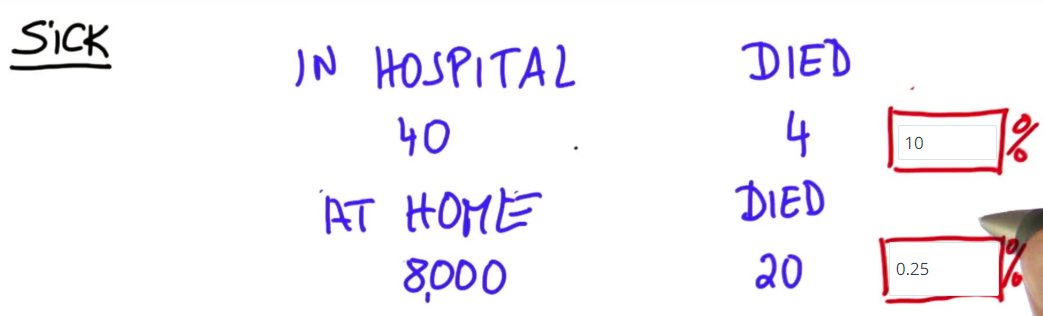 SICK
IN HOSPITAL DIED
40 4 10 %
AT HOME DIED
8,000 20 0.25 %